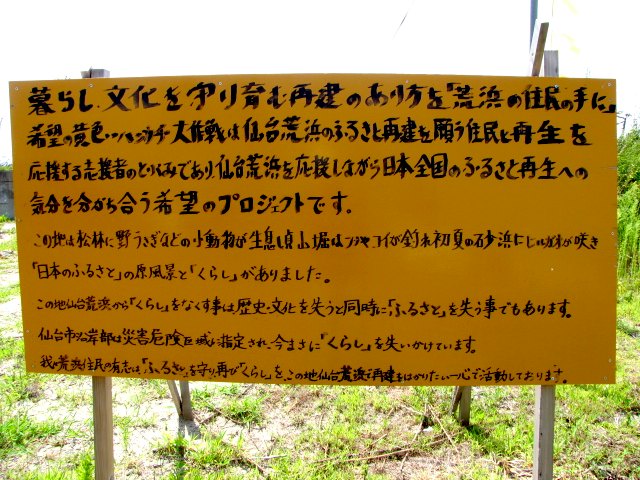 暮らし、文化を守り育む再建のあり方を「荒浜の住民の手に」
希望の黄色いハンカチ大作戦は仙台荒浜のふるさと再建を願う住民と再生を
応援する支援者のとりくみであり、仙台荒浜を応援しながら日本全国のふるさと再生への
気分を分かち合う希望のプロジェクトです。
この地は松林に野うさぎなどの小動物が生息し貞山堀はフナやコイが釣れ初夏の砂浜にヒルガオが咲き
「日本のふるさと」の原風景と「くらし」がありました。
この地仙台荒浜から「くらし」をなくす事は歴史・文化を失うと同時に「ふるさと」を失う事でもあります。
仙台市沿岸部は災害危険区域に指定され、今まさに「くらし」を失いかけています。
我々荒浜住民の有志は、「ふるさと」を守り、再び「くらし」を、この地仙台荒浜で再建をはかりたい一心で活動しております。